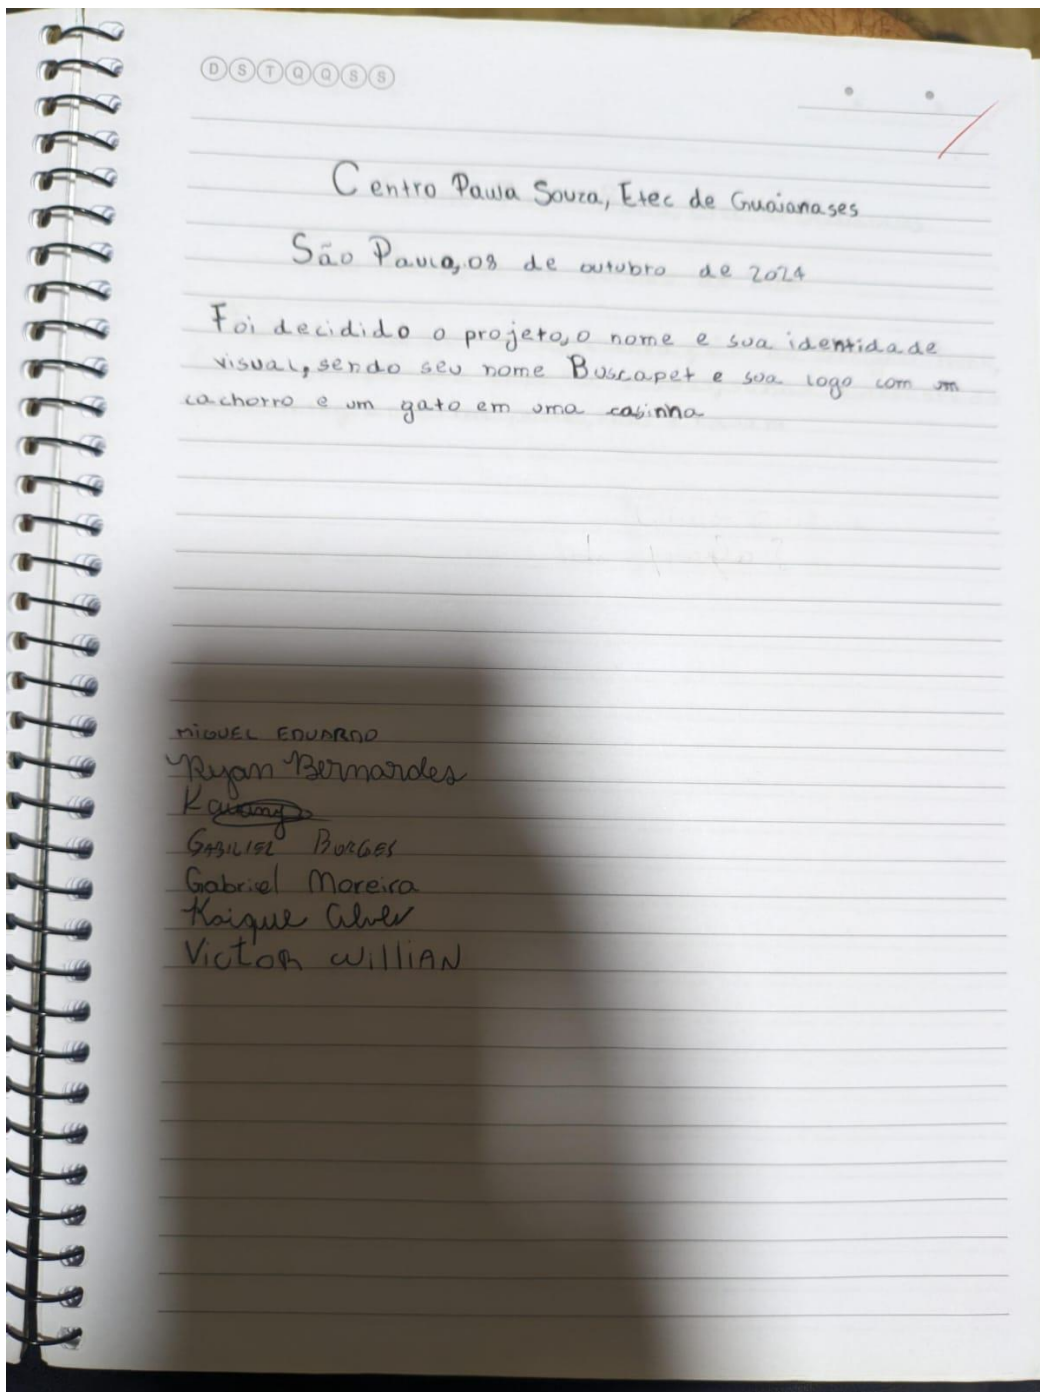 D S T Q Q S S
Centro Paula Souza, Etec de Guaianases
São Paulo, 08 de outubro de 2024
Foi decidido o projeto, o nome e sua identidade
visual, sendo seu nome Buscapet e sua logo com um
cachorro e um gato em uma casinha
MIGUEL EDUARDO
Ryan Bernardes
GABRIEL BORGES
Gabriel Moreira
Kaique Alves
Victor Willian